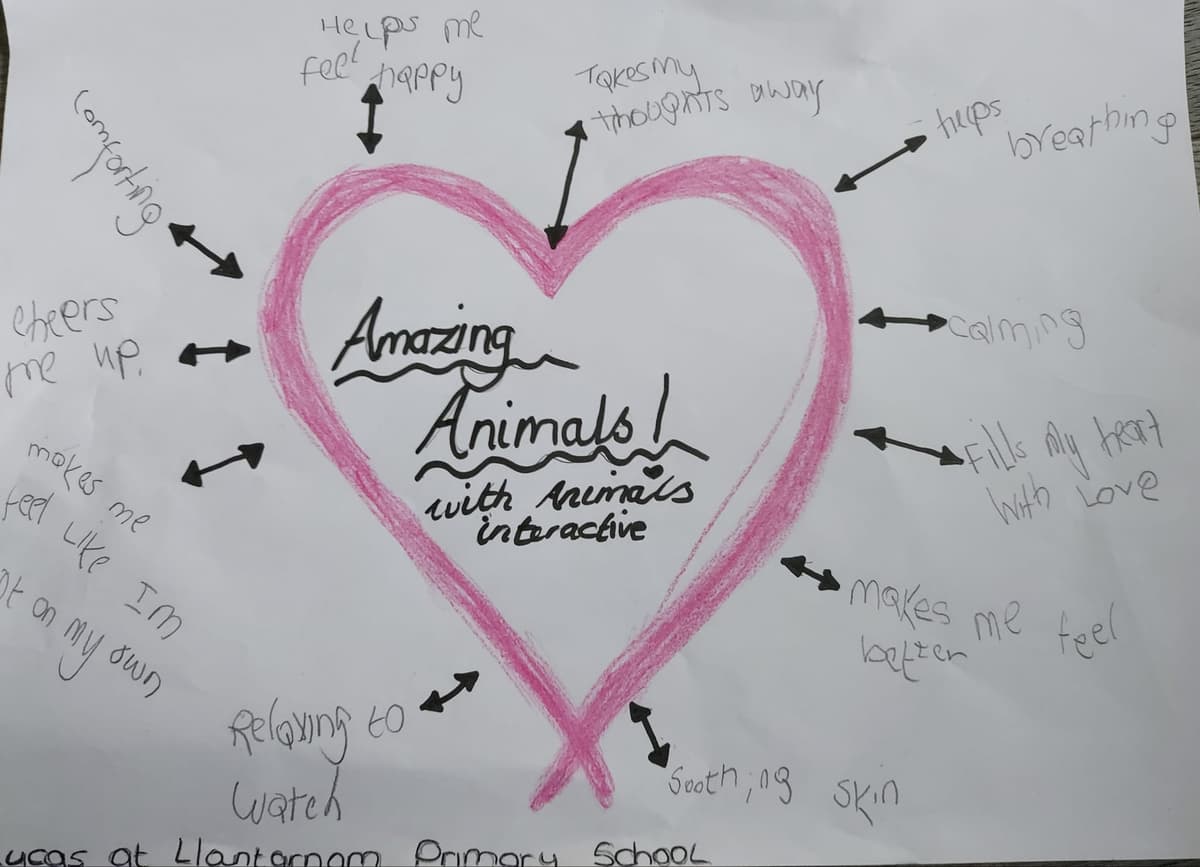 Helps me
feel happy
Takes my
thoughts away
helps
breathing
comforting
cheers
me up.
calming
Amazing
Animals!
with Animals
interactive
Fills my heart
with Love
makes me
feel Like Im
on my own
makes me feel
better
Relaxing to
watch
Soothing skin
at Llantarnam Primary School